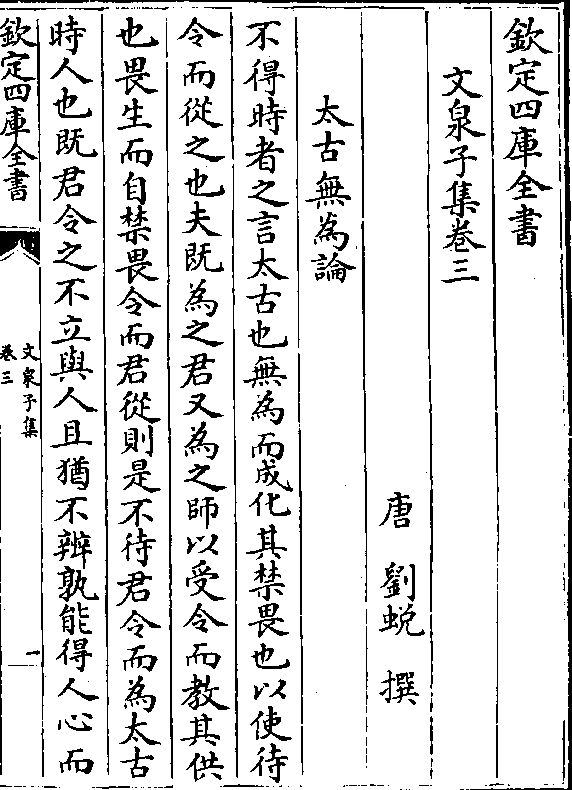 欽定四庫全書
文泉子集卷三
唐 劉蛻 撰
太古無為論
不得時者之言太古也無為而成化其禁畏也以使待
令而從之也夫既為之君又為之師以受令而教其供
也畏生而自禁畏令而君從則是不待君令而為太古
時人也既君令之不立與人且猶不辨孰能得人心而
欽定四庫全書
文泉子集
卷三
一